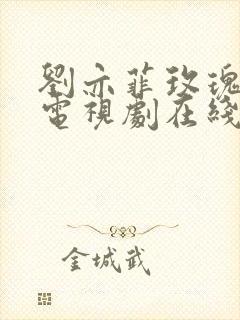 劉亦菲玫瑰
電視劇在綫
金城武